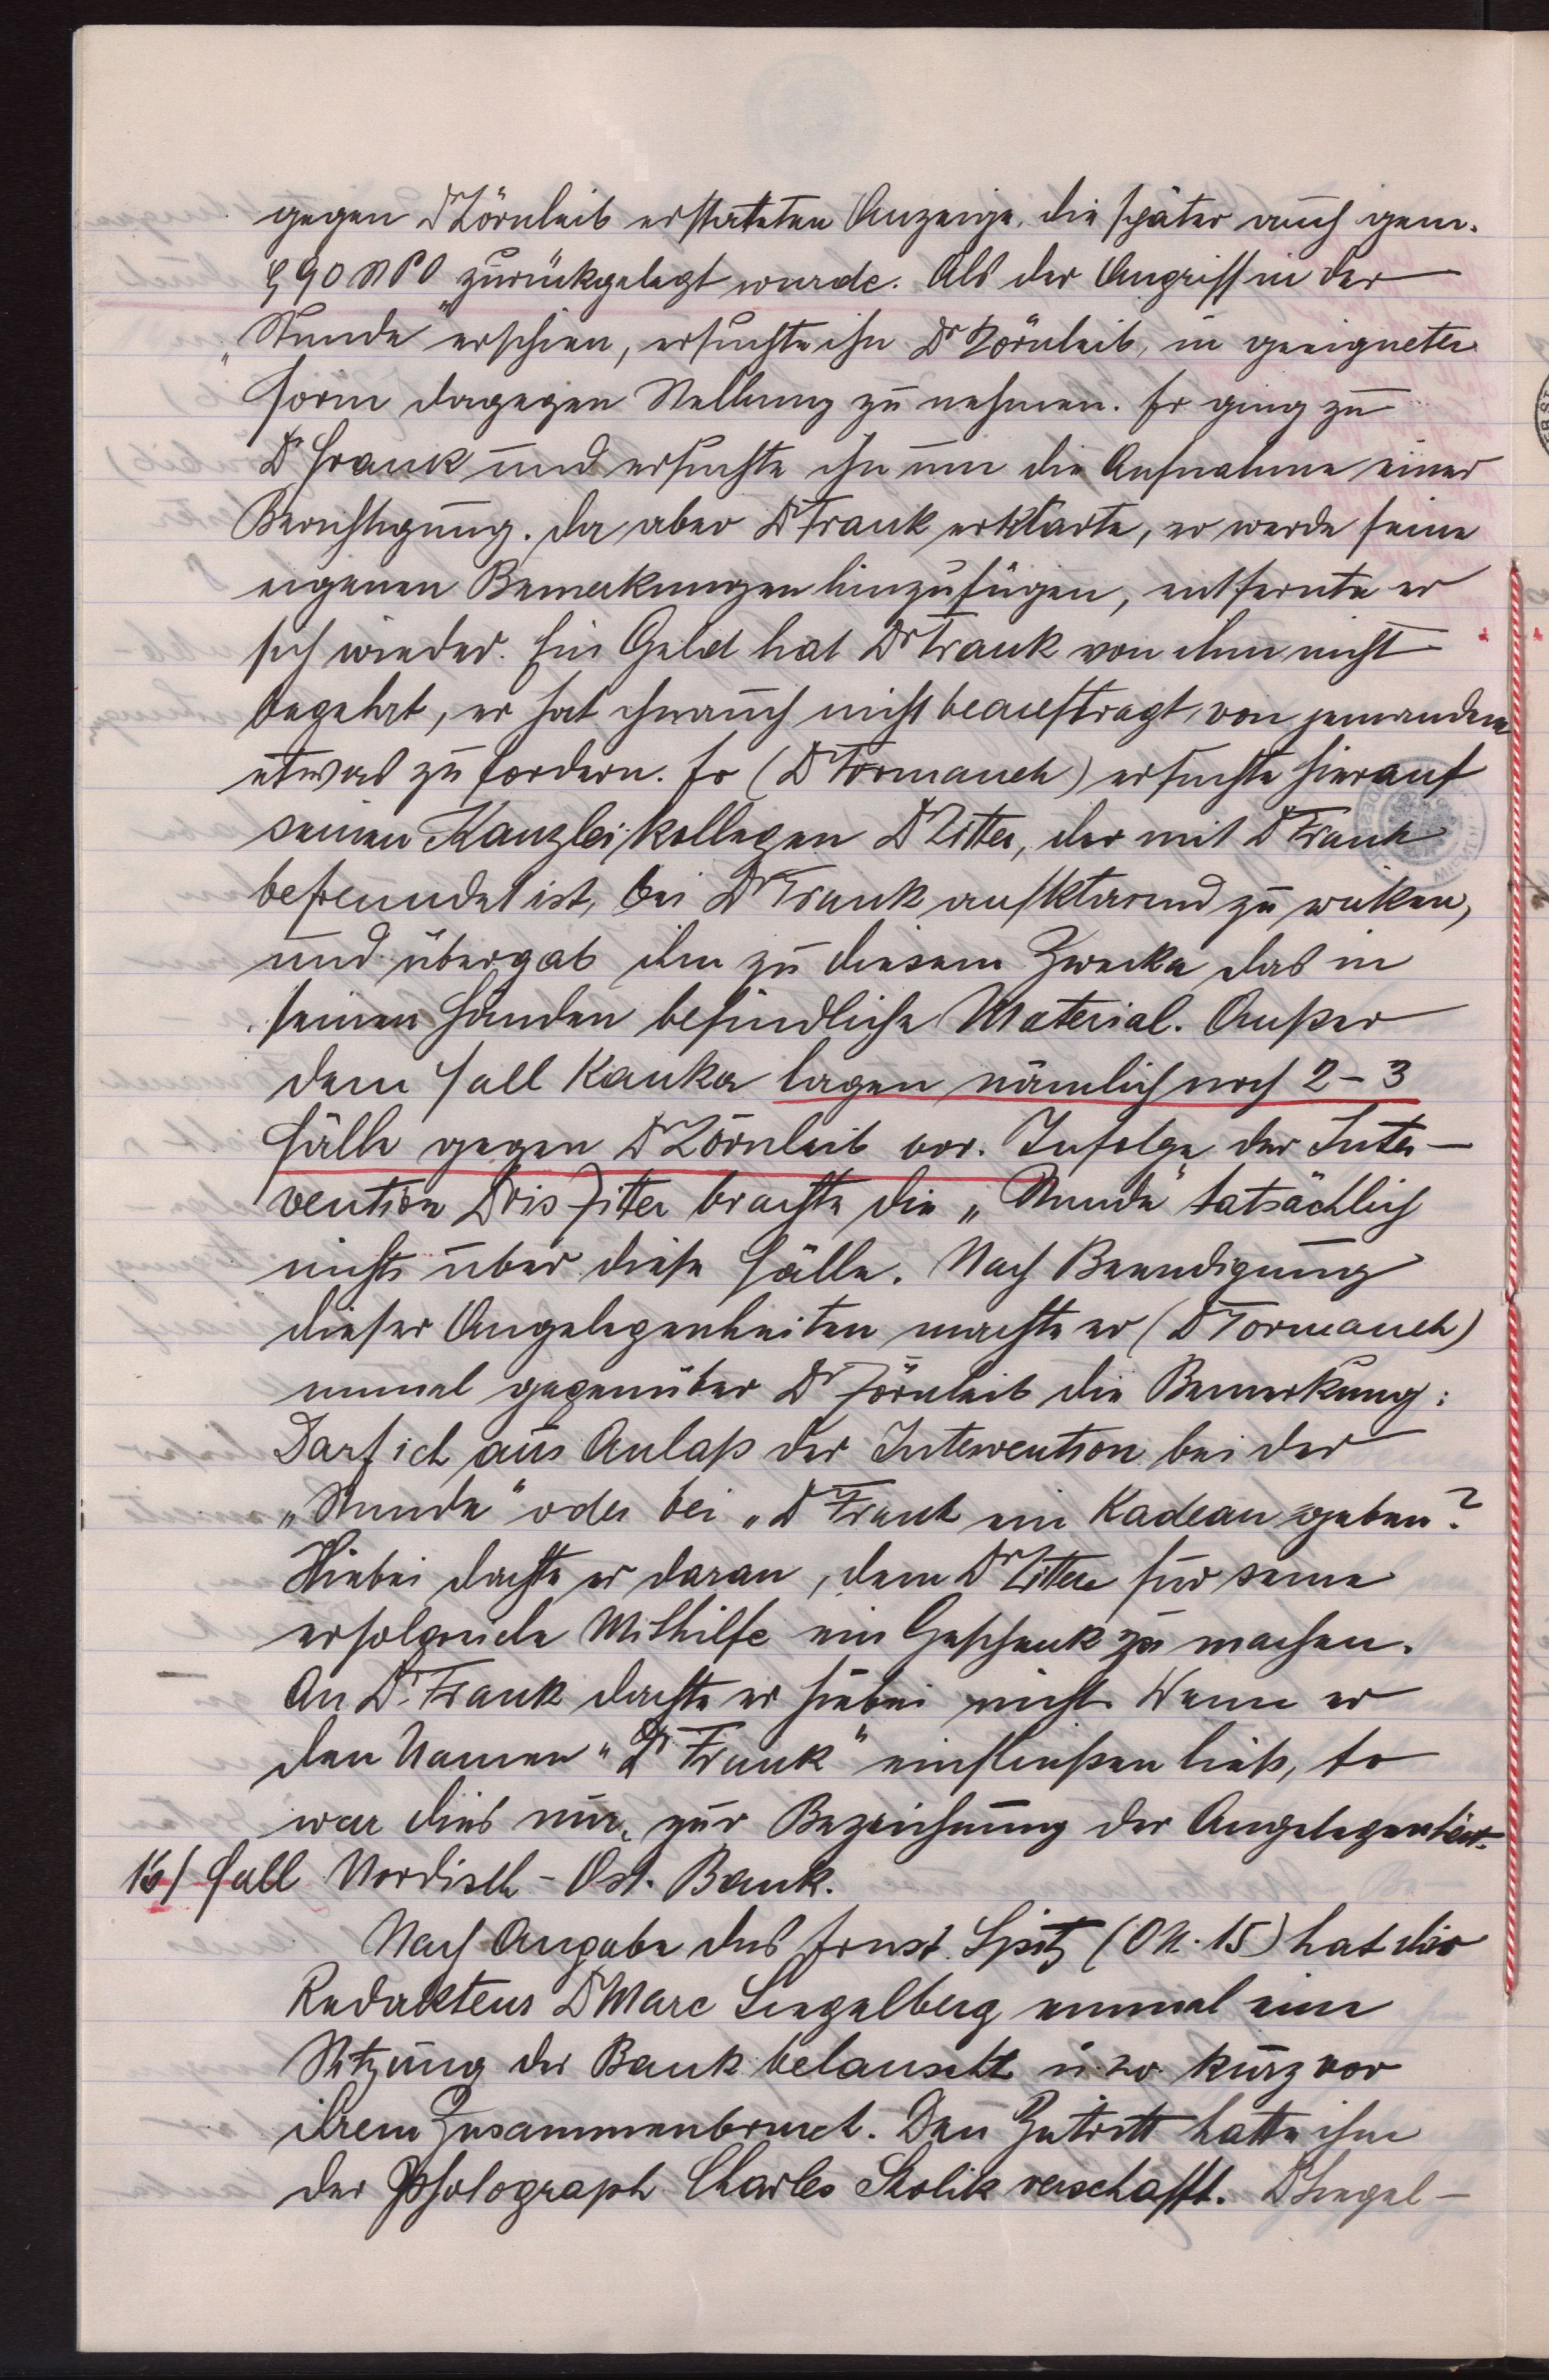 gegen Dr Zörnleib erstatteten Anzeige, die später auch gem.
§ 90 StPO zurückgelegt wurde. Als der Angriff in der
„Stunde“ erschien, ersuchte ihn Dr Zörnleib, in geeigneter
Form dagegen Stellung zu nehmen. Er ging zu
Dr Frank und ersuchte ihn um die Aufnahme einer
Berichtigung. Da aber Dr Frank erklärte, er werde seine
eigenen Bemerkungen hinzufügen, entfernte er
sich wieder. Ein Geld hat Dr Frank von ihm nicht
begehrt, er hat ihn auch nicht beauftragt, von jemandem
etwas zu fordern. Er (Dr Tormanek) ersuchte hierauf
seinen Kanzleikollegen Dr Zitter, der mit Dr Frank
befreundet ist, bei Dr Frank aufklärend zu wirken,
und übergab ihm zu diesem Zwecke das in
seinen Händen befindliche Material. Außer
dem Fall Kauka lagen nämlich noch 2-3
Fälle gegen Dr Zörnleib vor. Infolge der Inter-
vention Dris Zitter brachte die „Stunde“ tatsächlich
nichts über diese Fälle. Nach Beendigung
dieser Angelegenheiten machte er (Dr Tormanek)
einmal gegenüber Dr Zörnleib die Bemerkung:
Darf ich aus Anlaß der Intervention bei der
„Stunde“ oder bei „Dr Frank ein Kadeau geben?
Hiebei dachte er daran, dem Dr Zitter für seine
erfolgreiche Mithilfe ein Geschenk zu machen.
An Dr Frank dachte er hiebei nicht. Wenn er
den Namen „Dr Frank“ einfließen ließ, so
war dies nur zur Bezeichnung der Angelegenheit.
16/ Fall Nordisch-Öst. Bank.
Nach Angabe des Ernst Spitz (ON. 15) hat der
Redakteur Dr Marc Siegelberg einmal eine
Sitzung der Bank belauscht u. zw. kurz vor
ihrem Zusammenbruch. Den Zutritt hatte ihm
der Photograph Charles Skolik verschafft. Dr Siegel-